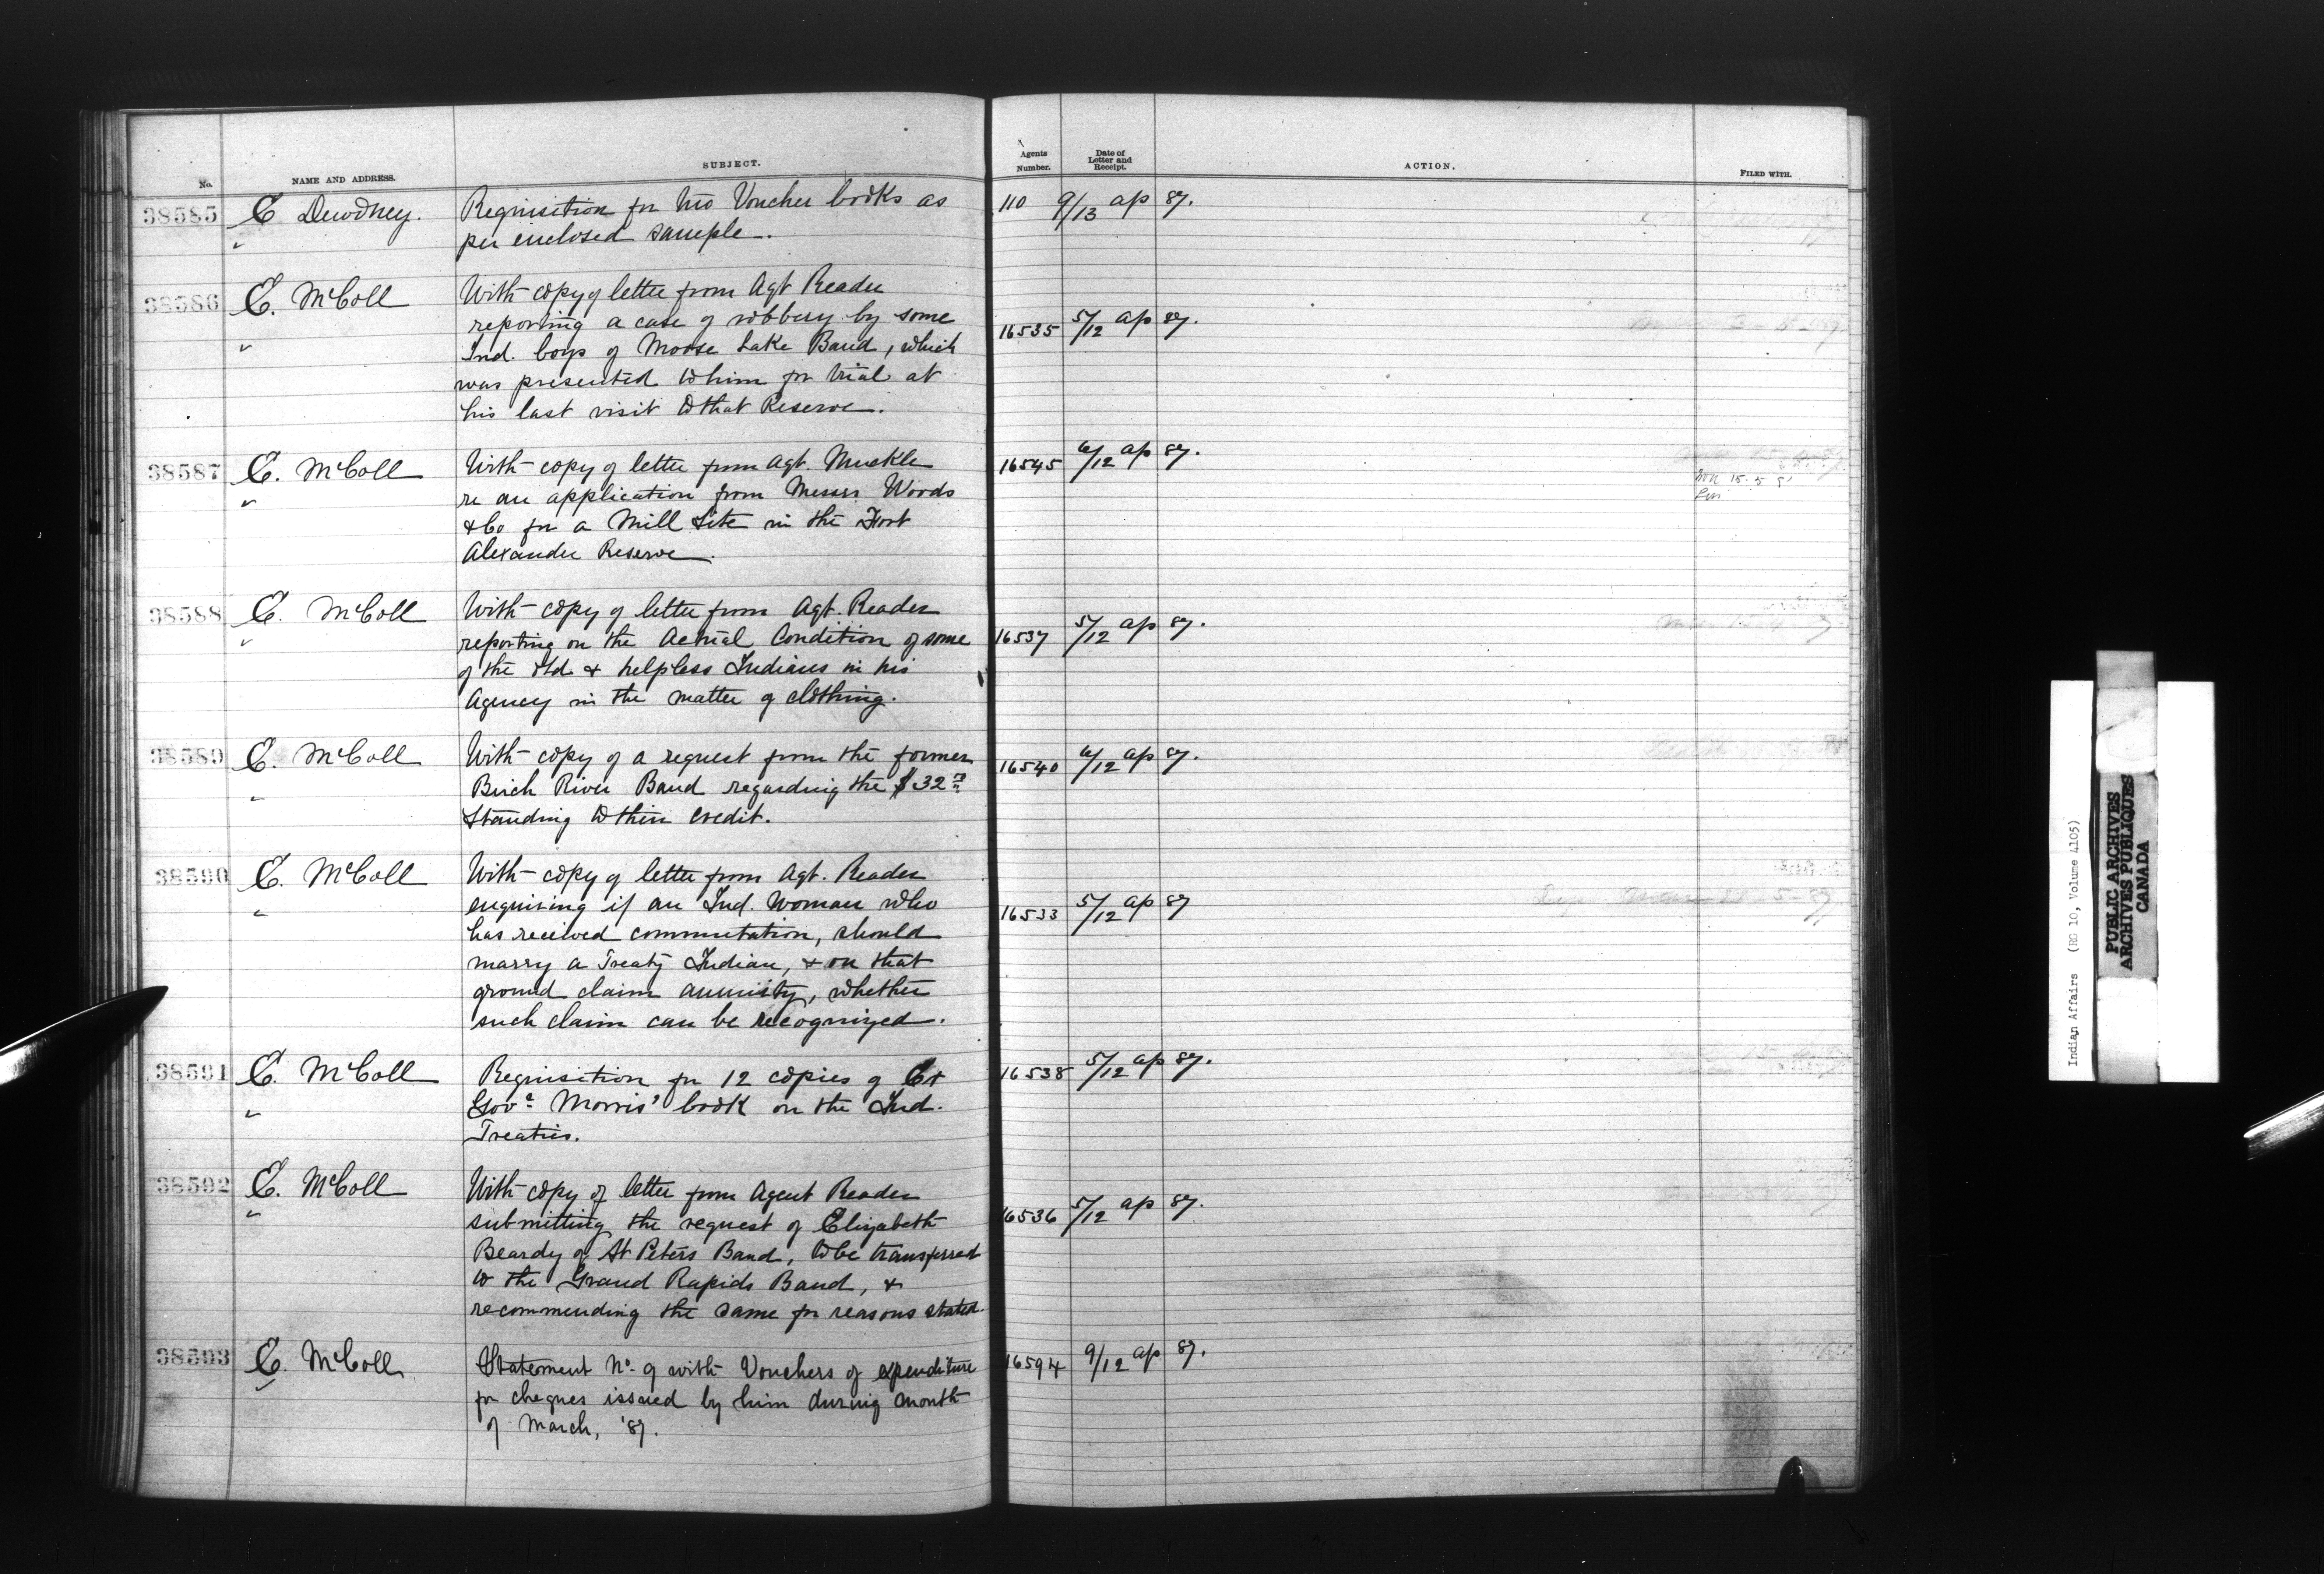 No.
NAME AND ADDRESS.
SUBJECT.
Agents Number.
Date of Letter and Receipt.
ACTION.
FILED WITH.
38585 E Dewdney. Requisition for two Voucher books as 110 9/13 ap 87.
" per enclosed sample.
38586 E. McColl With copy of letter from Agt Reader
reporting a case of robbery by some 16535 5/12 ap 87.
" Ind. boys of Moose Lake Band, which
was presented to him for trial at
his last visit to that Reserve.
38587 E. McColl With copy of letter from Agt. Muckle 16545 6/12 ap 87.
" re an application from Messrs Woods
& Co for a Mill Site in the Fort
Alexander Reserve.
38588 E. McColl With copy of letter from Agt. Reader
" reporting on the Actual Condition of some 16537 5/12 ap 87.
of the old & helpless Indians in his
Agency in the matter of clothing.
38589 E. McColl With copy of a request from the former 16540 6/12 ap 87.
" Birch River Band regarding the $32
Standing to their credit.
38590 E. McColl With copy of letter from Agt. Reader
" enquiring if an Ind. woman who 16533 5/12 ap 87
has received commutation, should
marry a Treaty Indian, & on that
ground claim annuity, whether
such claim can be recognized.
38591 E. McColl Requisition for 12 copies of Ex 16538 5/12 ap 87.
" Govr. Morris' book on the Ind.
Treaties.
38592 E. McColl With copy of letter from Agent Reader
" submitting the request of Elizabeth 16536 5/12 ap 87.
Beardy of St Peters Band, to be transferred
to the Grand Rapids Band, &
recommending the same for reasons stated.
38593 E. McColl Statement No. 9 with Vouchers of expenditure 16594 9/12 ap 87.
" for cheques issued by him during month
of March, '87.
Indian Affairs (RG 10, Volume 4105)
PUBLIC ARCHIVES
ARCHIVES PUBLIQUES
CANADA